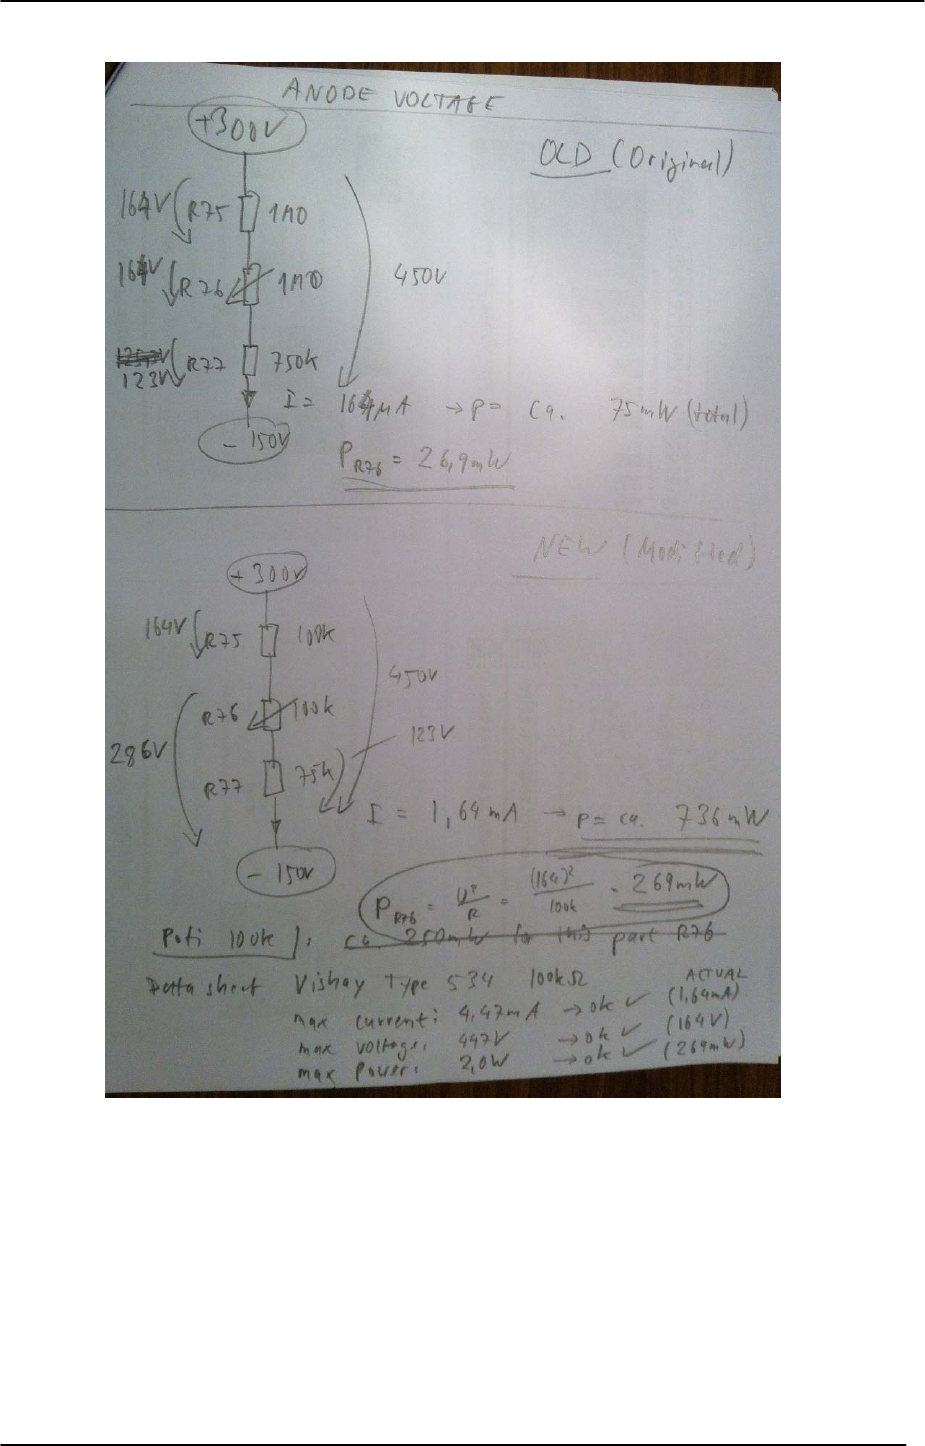 ANODE VOLTAGE
OLD (Original)
+300V
164V R75 1MΩ
164V R76 1MΩ
450V
R77 750k
123V
I = 164μA → P = ca. 75mW (total)
-150V
P R76 = 26,9mW
NEW (Modified)
+300V
164V R75 100k
450V
R76 100k
123V
286V
R77 75k
I = 1,64mA → P = ca. 736mW
-150V
P R76 = U²/R = (164)²/100k = 269mW
Poti 100k : ca. 250mW for this part R76
Datasheet Vishay Type 534 100kΩ ACTUAL
max current: 4,47mA → ok ✓ (1,64mA)
max voltage: 447V → ok ✓ (164V)
max Power: 2,0W → ok ✓ (269mW)